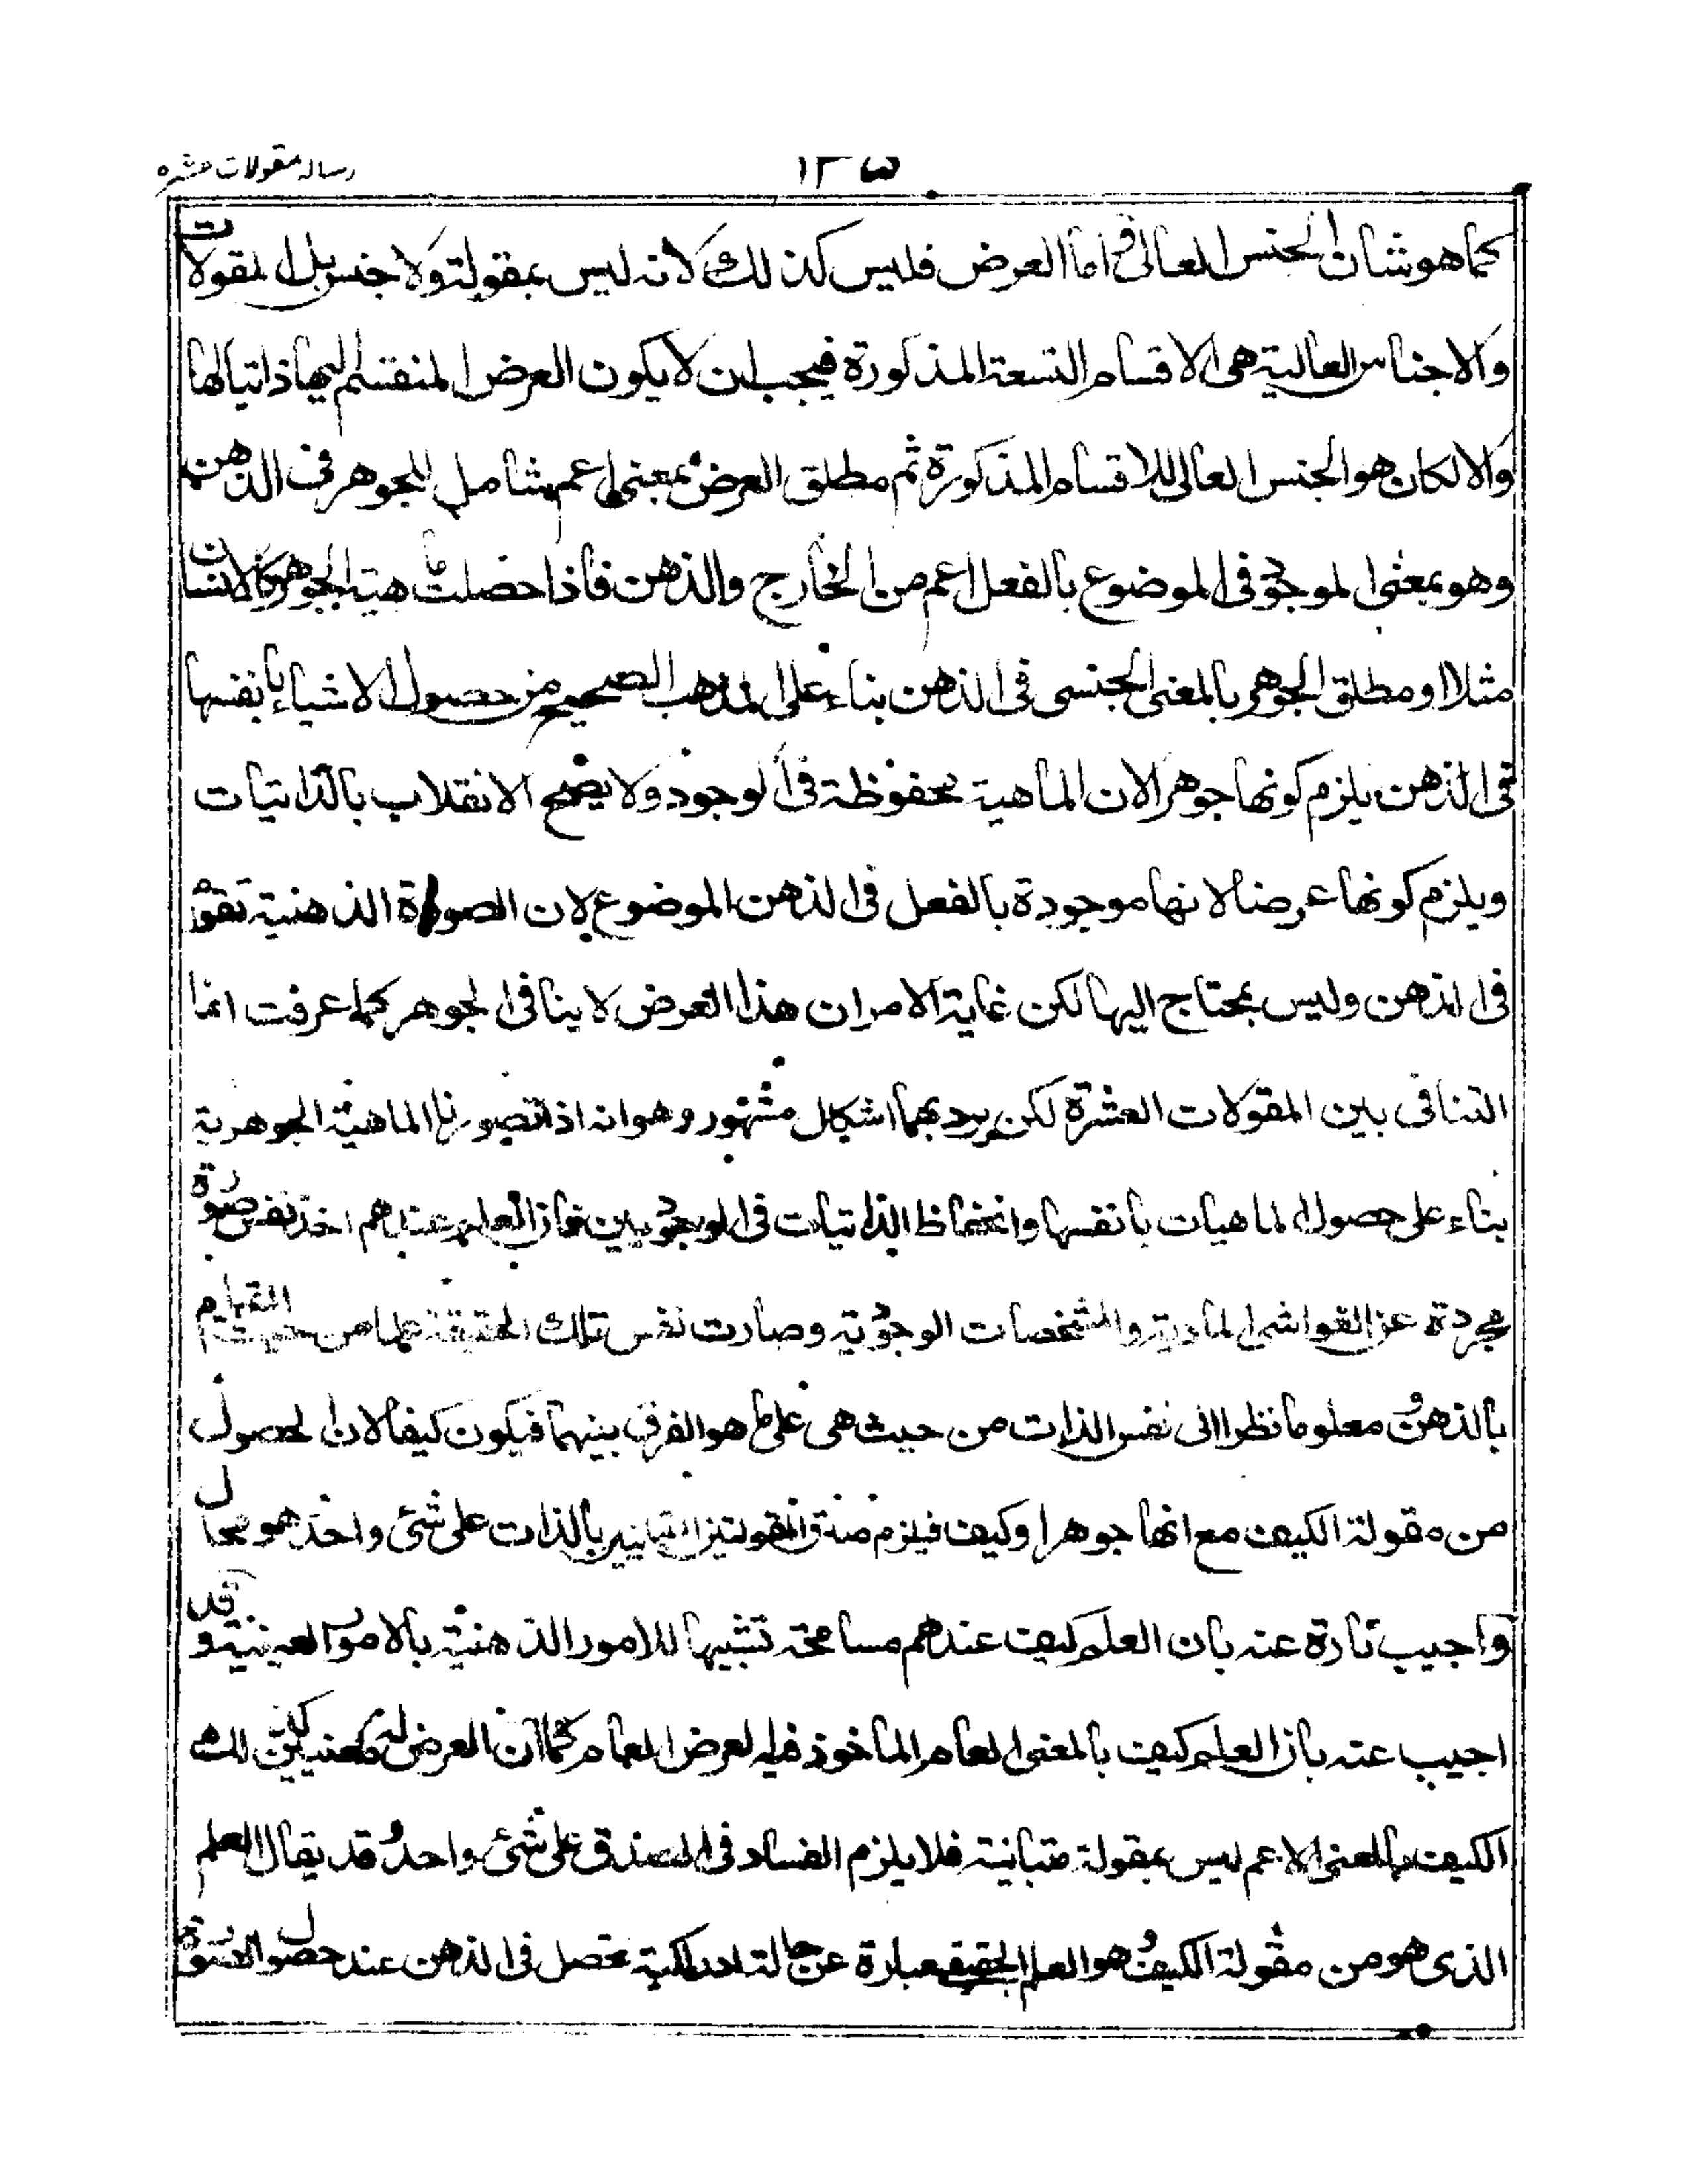 رساله مقولات عشره
١٣٥
كما هو شان الجنس العالى و اما العرض فليس كذلك لانه ليس بمقولة ولا جنس بل المقولات
والاجناس العالية هى الاقسام التسعة المذكورة فيجب ان لا يكون العرض المنقسم اليها ذاتيا لها
والا لكان هو الجنس العالى للاقسام المذكورة ثم مطلق العرض بمعنى اعم شامل للجوهر فى الذهن
وهو بمعنى الموجود فى الموضوع بالفعل اعم من الخارج والذهن فاذا حصلت ماهية الجوهر كالانسان
مثلا او مطلق الجوهر بالمعنى الجنسى فى الذهن بناء على المذهب الصحيح من حصول الاشياء بانفسها
فى الذهن يلزم كونها جوهرا لان الماهية محفوظة فى الوجود ولا يصح الانقلاب بالذاتيات
ويلزم كونها عرضا لانها موجودة بالفعل فى الذهن الموضوع لان الصورة الذهنية تقوم
فى الذهن وليس بمحتاج اليها لكن غاية الامر ان هذا العرض لا ينافى الجوهر كما عرفت انما
التنافى بين المقولات العشرة لكن يرد بهما اشكال مشهور وهو انه اذا تصورنا الماهية الجوهرية
بناء على حصول الماهيات بانفسها وانحفاظ الذاتيات فى الوجودين فاذ العلم عندهم اخذ نفس صورة
مجردة عن الغواشى المادية والمشخصات الوجودية وصارت نفس تلك الحقيقة علما من حيث القيام
بالذهن و معلوما نظرا الى نفس الذات من حيث هى على ما هو الفرق بينهما فيكون كيفا لان الحصول
من مقولة الكيف مع انها جوهرا وكيف فيلزم صدق المقولتين المتباينتين بالذات على شئ واحد هو محال
واجيب تارة عنه بان العلم كيف عندهم مسامحة تشبيها للامور الذهنية بالامور العينية وقد
اجيب عنه بان العلم كيف بالمعنى العام الماخوذ فيه العرض العام كما ان العرض له معنيين كذلك
الكيف بالمعنى الاعم ليس بمقولة متباينة فلا يلزم الفساد فى الصدق على شئ واحد و قد يقال العلم
الذى هو من مقولة الكيف و هو العلم الحقيقى عبارة عن حالة ادراكية تحصل فى الذهن عند حصول الصورة